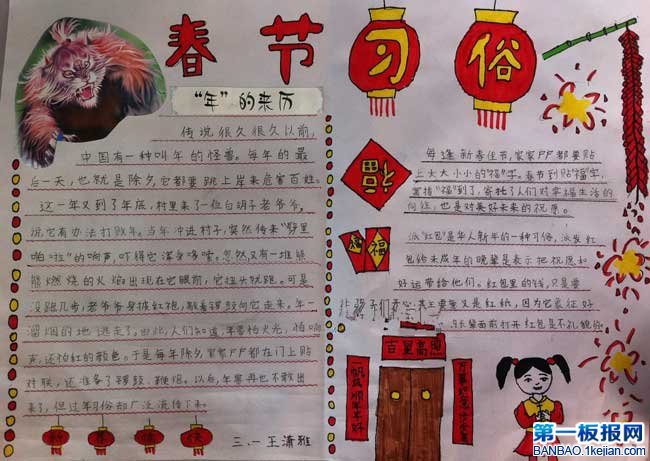 春节习俗
“年”的来历
传说很久很久以前,
中国有一种叫年的怪兽。每年的最
后一天,也就是除夕,它都要跳上岸来危害百姓。
这一年又到了年底,村里来了一位白胡子老爷爷,
说它有办法打败年。当年冲进村子,突然传来“噼里
啪啦”的响声,吓得它浑身哆嗦。忽然又有一堆熊
熊燃烧的火焰出现在它眼前,它扭头就跑。可是
没跑几步,老爷爷身披红袍,敲着锣鼓向它走来。年一
溜烟的地逃走了。由此,人们知道,年害怕火光,怕响
声,还怕红的颜色。于是每年除夕,家家户户都在门上贴
对联,还准备了锣鼓、鞭炮。以后,年害再也不敢出
来了,但过年习俗却广泛流传下来。
三.一王潇雅
每逢新春佳节,家家户户都要贴
上大大小小的“福”字。春节到贴“福”字,
意指“福”到了,寄托了人们对幸福生活的
向往,也是对美好未来的祝愿。
福
福
派“红包”是华人新年的一种习俗,派发红
包给未成年的晚辈是表示把祝愿和
好运带给他们。红包里的钱,只是要
让孩子们开心,其主要意义是红纸,因为它象征好
面前打开红包是不礼貌的
吉星高照
一帆风顺年年好
万事如意步步高
快
第一板报网
BANBAO.1kejian.com